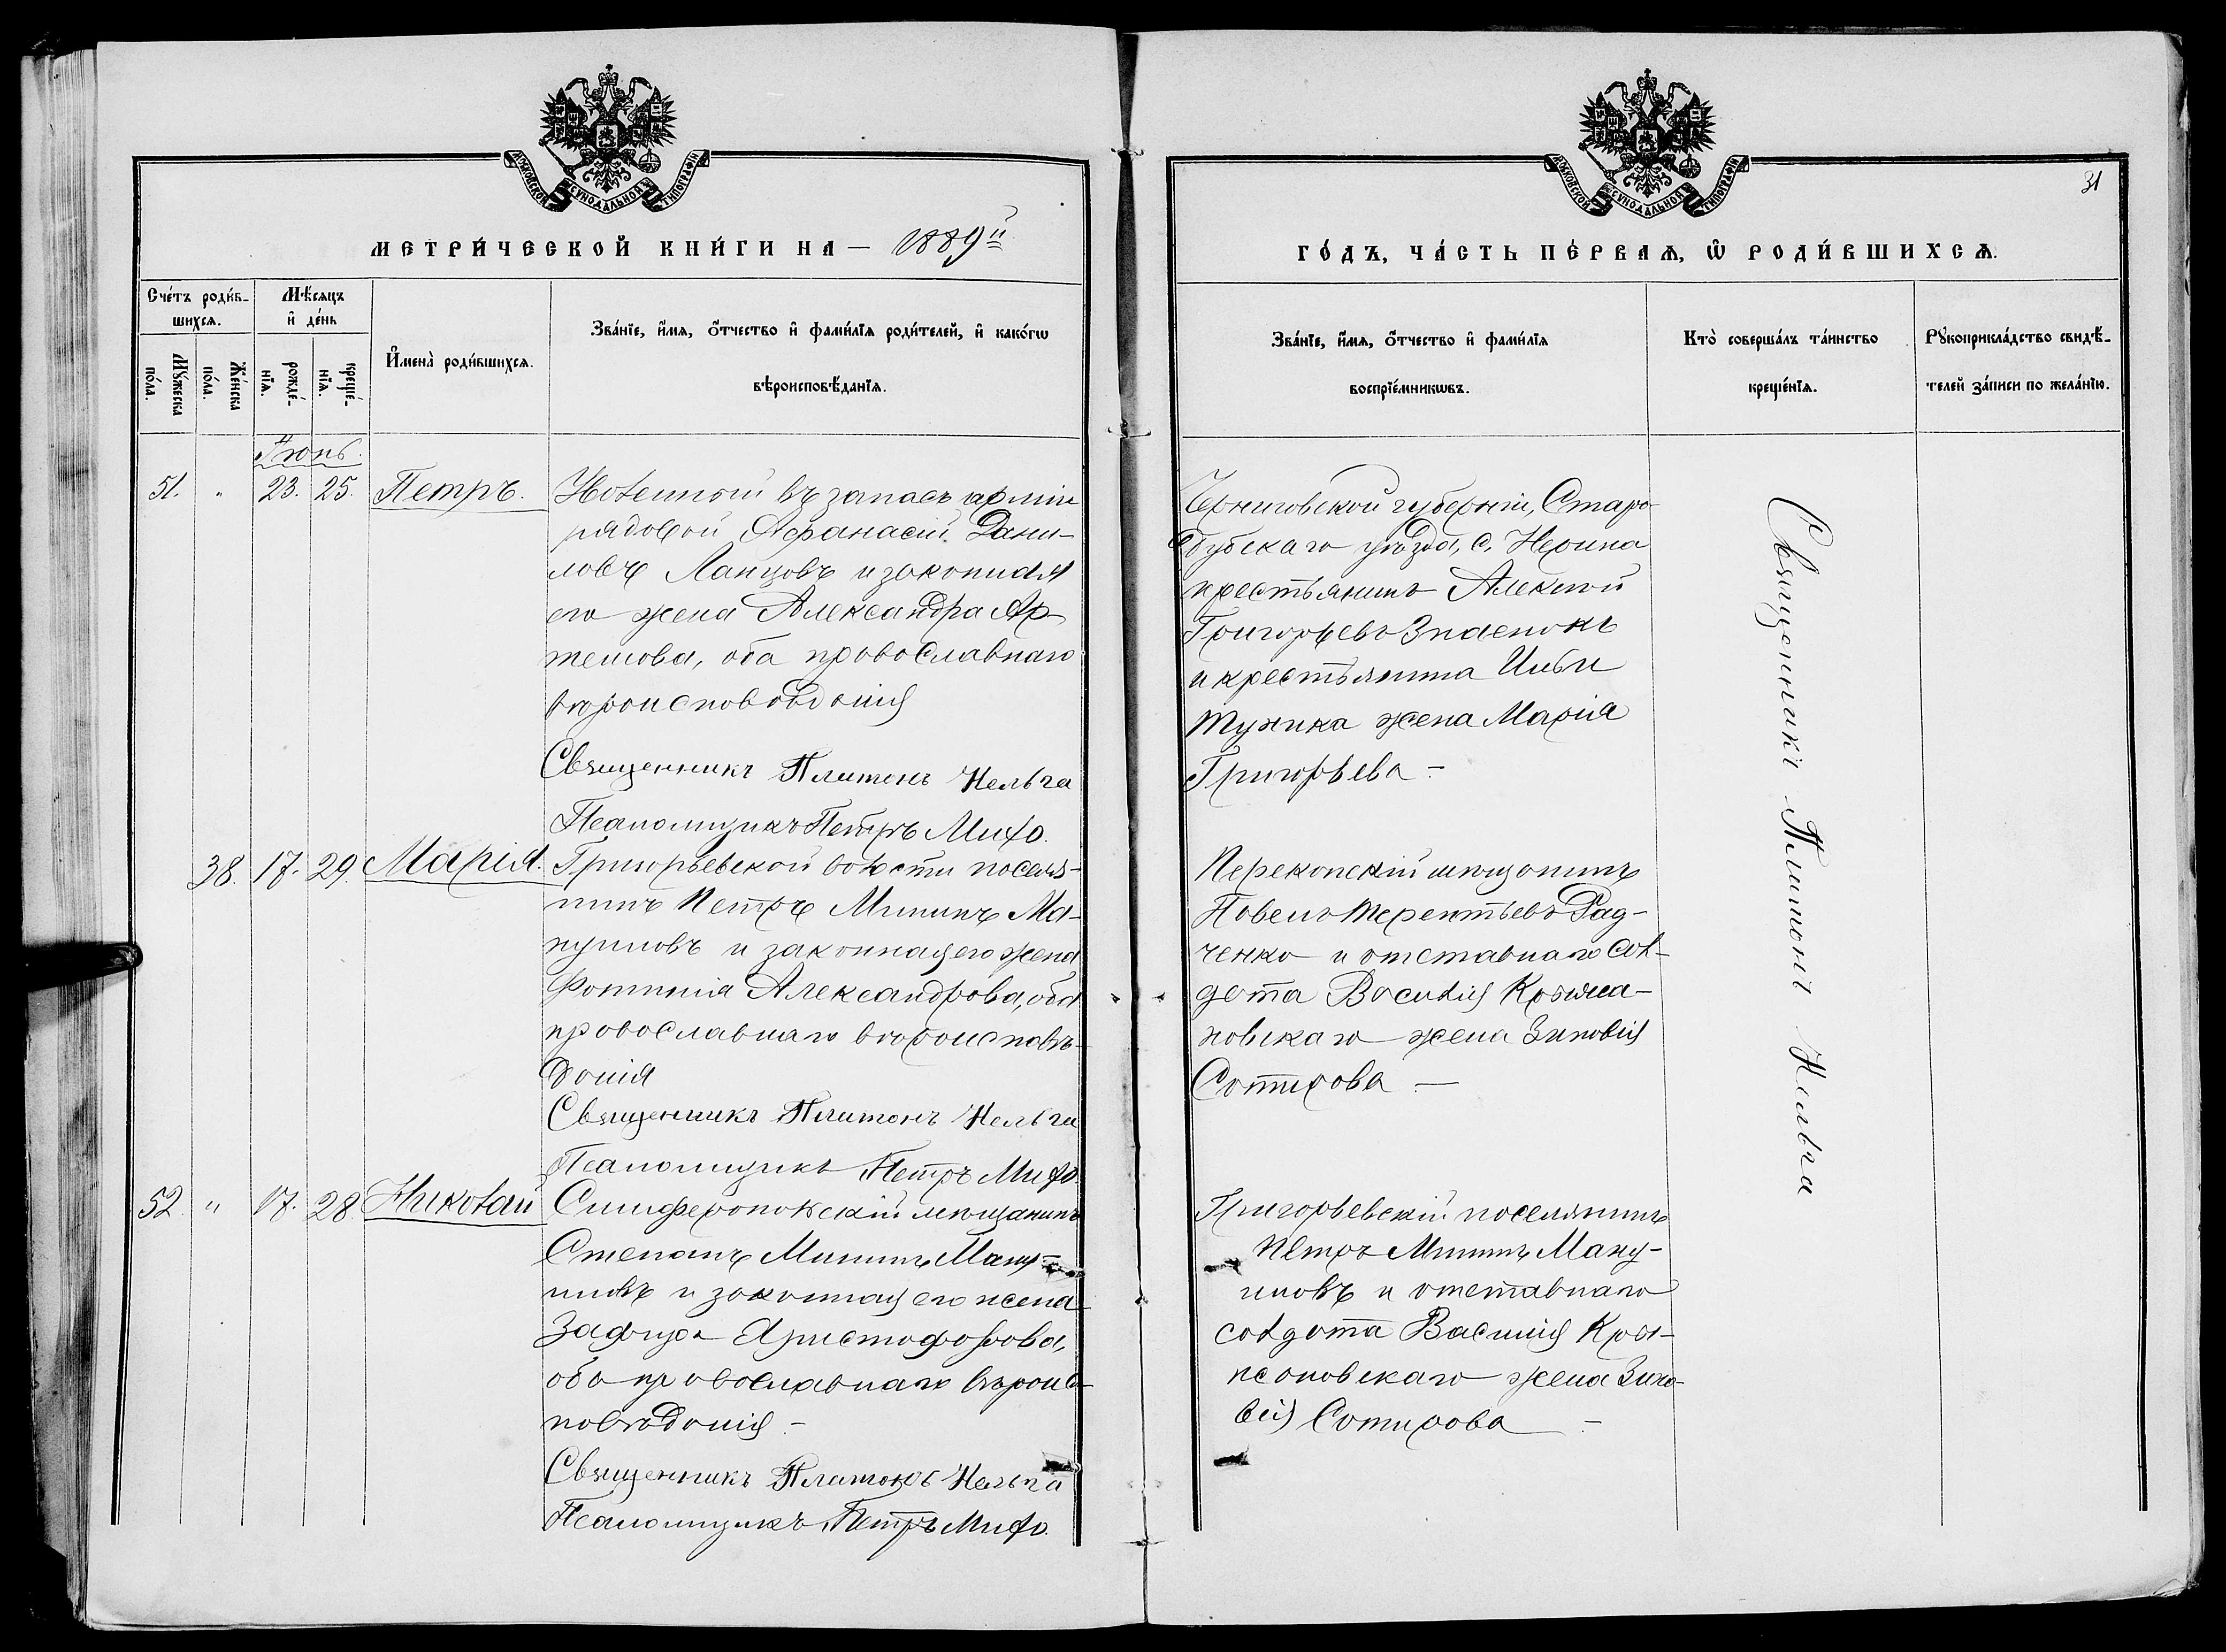 МОСКОВСКОЙ СѴНОДАЛЬНОЙ ТИПОГРАФІИ
МЕТРИ́ЧЕСКОЙ КНИ́ГИ НА — 1889й
Сче́тъ роди́в-
шихся.
Мѣ́сяцъ
и де́нь
Му́жеска
по́ла.
Же́нска
по́ла.
рожде́-
нїя.
креще́-
нїя.
Имена̀ роди́вшихся.
Зва́нїе, и́мя, о́тчество и фами́лїя роди́телей, и како́гѡ
вѣроисповѣ́данїя.
Іюнь.
51. " 23. 25. Петръ.
въ запасъ арміи
рядовой Афанасій Дани-
ловъ Ланцовъ и законная
его жена Александра Ар-
темова, оба православнаго
вѣроисповѣданія
Священникъ Платонъ Нельга
Псаломщикъ Петръ Мифо.
38. 17. 29. Марія.
Григорьевской волости поселя-
нинъ Петръ Мининъ Ма-
нуиловъ и законная его жена
Фотинія Александрова, оба
православнаго вѣроисповѣ-
данія
Священникъ Платонъ Нельга
Псаломщикъ Петръ Мифо.
52 " 17. 28. Николай
Симферопольскій мѣщанинъ
Степанъ МининъМану-
иловъ и законная его жена
Зафира Христофорова,
оба православнаго вѣроис-
повѣданія –
Священникъ Платонъ Нельга
Псаломщикъ Петръ Мифо.
МОСКОВСКОЙ СѴНОДАЛЬНОЙ ТИПОГРАФІИ
31
ГО́ДЪ, ЧА́СТЬ ПЕ́РВАЯ, Ѡ РОДИ́ВШИХСЯ.
Зва́нїе, и́мя, о́тчество и фами́лїя
воспрїе́мникѡвъ.
Кто̀ соверша́лъ та́инство
креще́нїя.
Рꙋкоприкла́дство свидѣ́-
телей за́писи по жела́нїю.
Черниговской губерніи, Старо-
дубскаго уѣзда, с.
крестьянинъ Алексѣй
Григорьевъ
и крестьянина Ильи
жена Марія
Григорьева –
Перекопскій мѣщанинъ
Павелъ Терентьевъ Рад-
ченко и отставнаго сол-
дата Василія
жена Зиновія
Сотирова —
Григорьевскій поселянинъ
Петръ Мининъ Ману-
иловъ и отставнаго
солдата Василія
жена Зино-
вія Сотирова –
Священникъ Платонъ Нельга